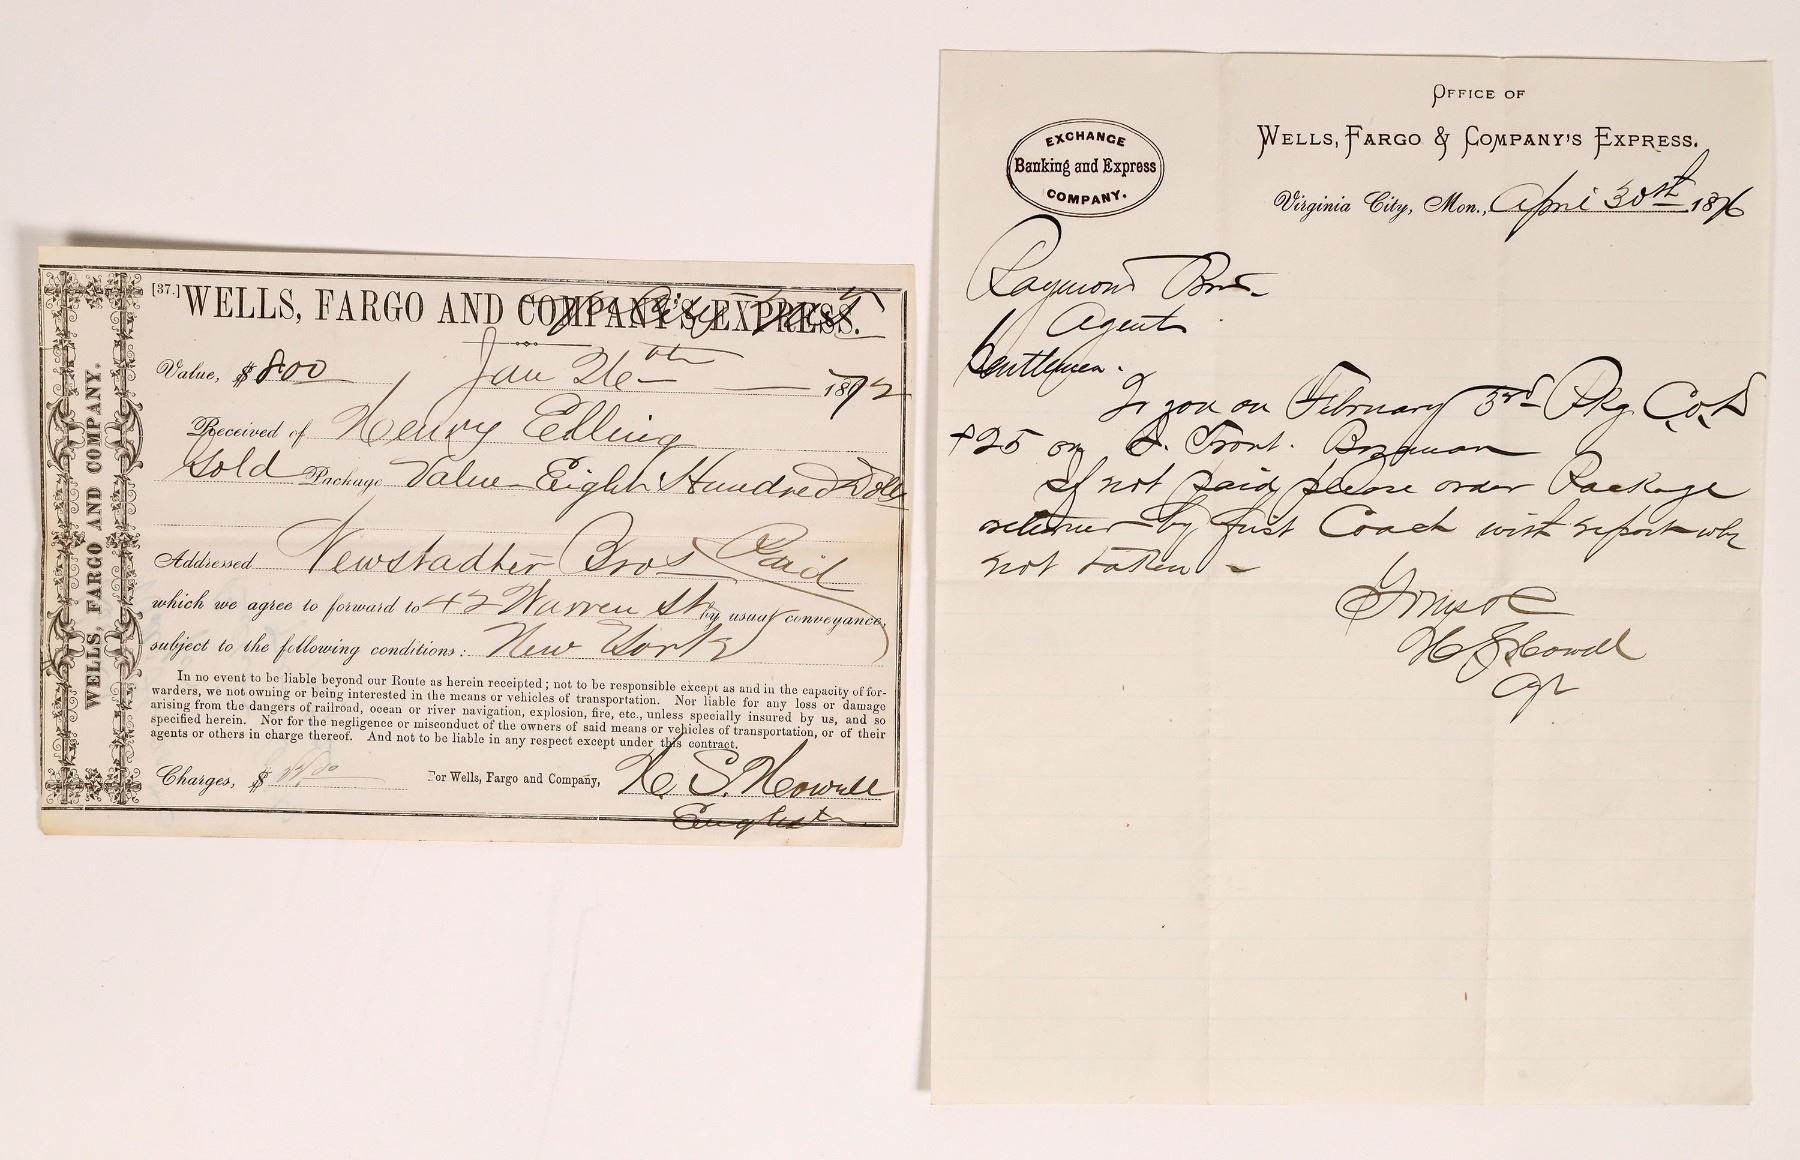 [37.] WELLS, FARGO AND COMPANY'S EXPRESS.
Va City Mon T
Value, $ 800 Jan 26th 1872
Received of Henry Elling
Sold Package Value Eight Hundred Dolls
Addressed Newstadter Bros Paid
which we agree to forward to 42 Warren St by usual conveyance,
subject to the following conditions: New York
In no event to be liable beyond our Route as herein receipted; not to be responsible except as and in the capacity of for-
warders, we not owning or being interested in the means or vehicles of transportation. Nor liable for any loss or damage
arising from the dangers of railroad, ocean or river navigation, explosion, fire, etc., unless specially insured by us, and so
specified herein. Nor for the negligence or misconduct of the owners of said means or vehicles of transportation, or of their
agents or others in charge thereof. And not to be liable in any respect except under this contract.
Charges, $ For Wells, Fargo and Company, H. S. Howell
WELLS, FARGO AND COMPANY. WELLS, FARGO AND COMPANY.
OFFICE OF
WELLS, FARGO & COMPANY'S EXPRESS.
EXCHANGE
Banking and Express
COMPANY.
Virginia City, Mon., April 30st 1876
Raymond Bros
Agents
Gentlemen.
To you on February 3rd Pkg C.O.D
$25 on Front. Bozeman
If not paid please order Package
returned by first Coach with report why
not taken -
Yours &c
H S Howell
Agt